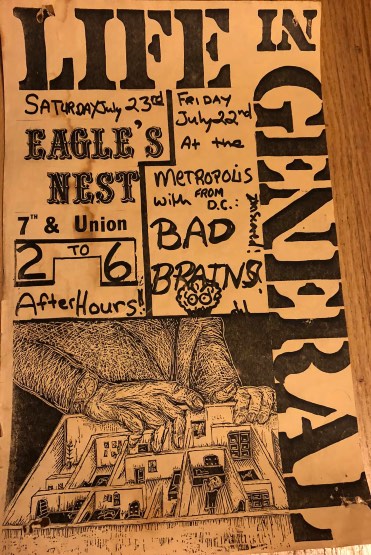 LIFE
IN
GENERAL
SATURDAY July 23rd
EAGLE'S
NEST
7TH & Union
2 TO 6
After Hours!
FRIDAY
July 22nd
At the
METROPOLIS
with FROM
D.C.:
BAD
BRAINS